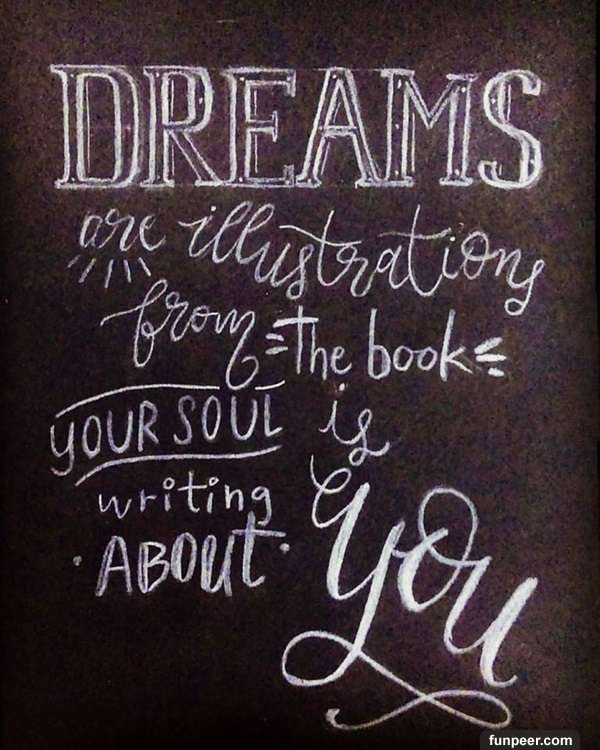 DREAMS
are illustrations
from the book
YOUR SOUL is
writing
ABOUT YOU
funpeer.com